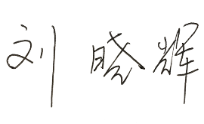 刘晓辉